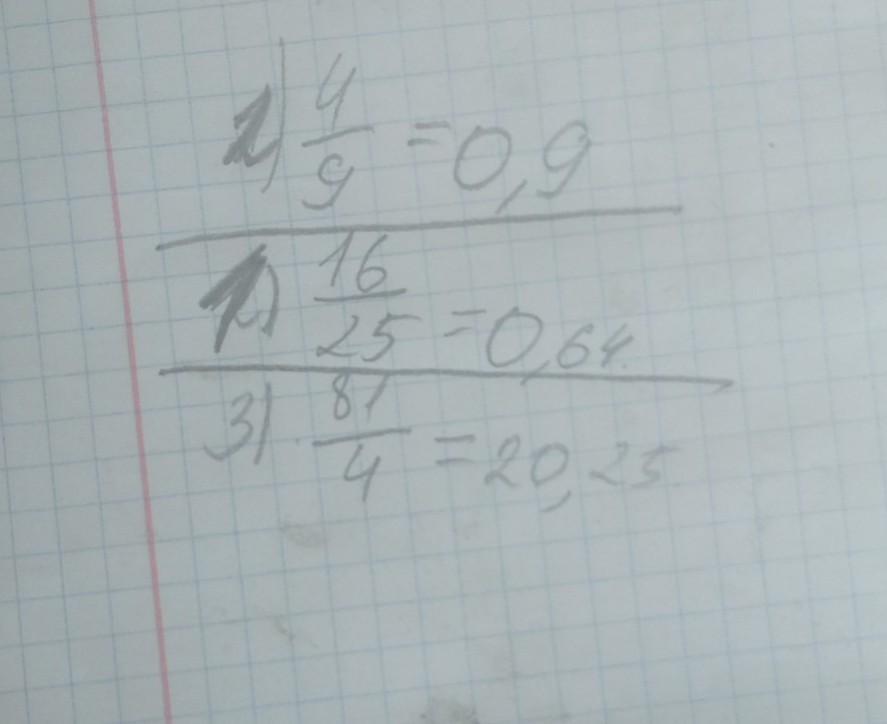 1) 4/9 = 0,9
2) 16/25 = 0,64
3) 81/4 = 20,25